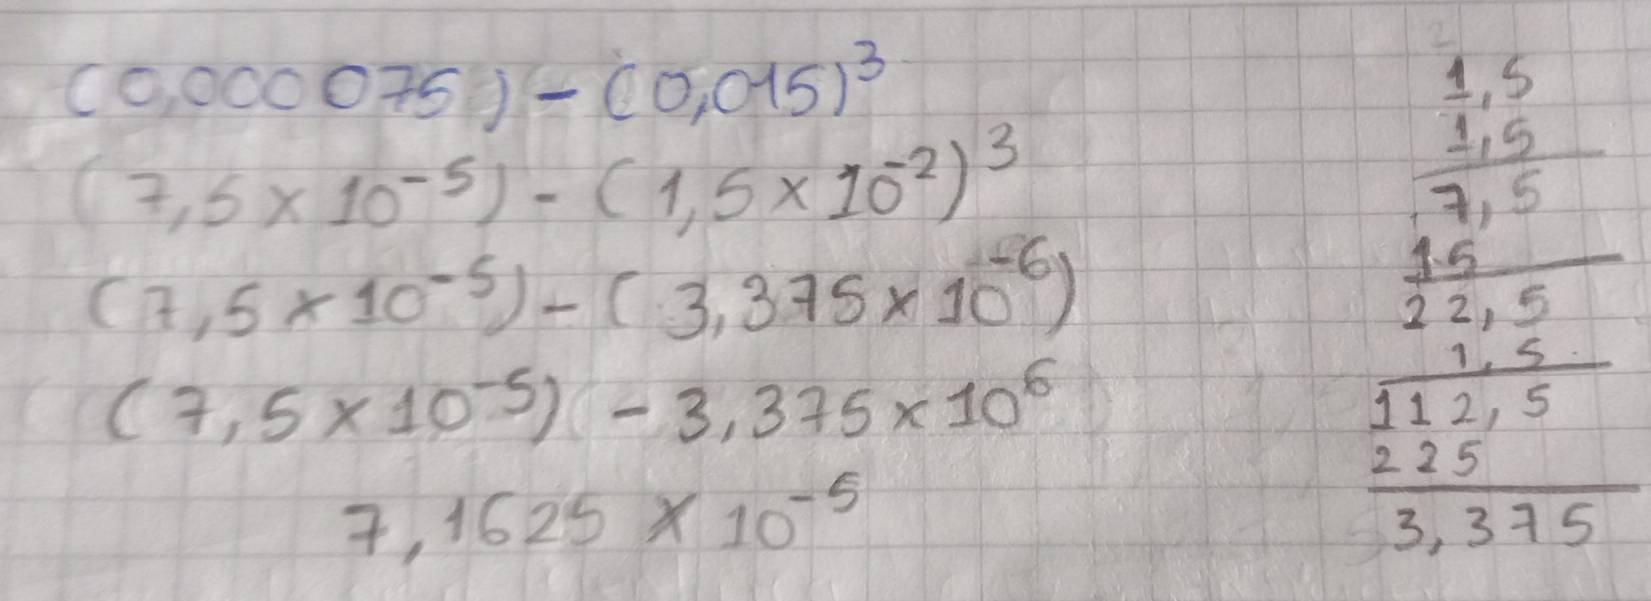 (0,000075) - (0,015)³
(7,5 x 10⁻⁵) - (1,5 x 10⁻²)³
(7,5 x 10⁻⁵) - (3,375 x 10⁻⁶)
(7,5 x 10⁻⁵) - 3,375 x 10⁶
7,1625 x 10⁻⁵
2
1,5
1,5
7,5
15
22,5
1,5
112,5
225
3,375